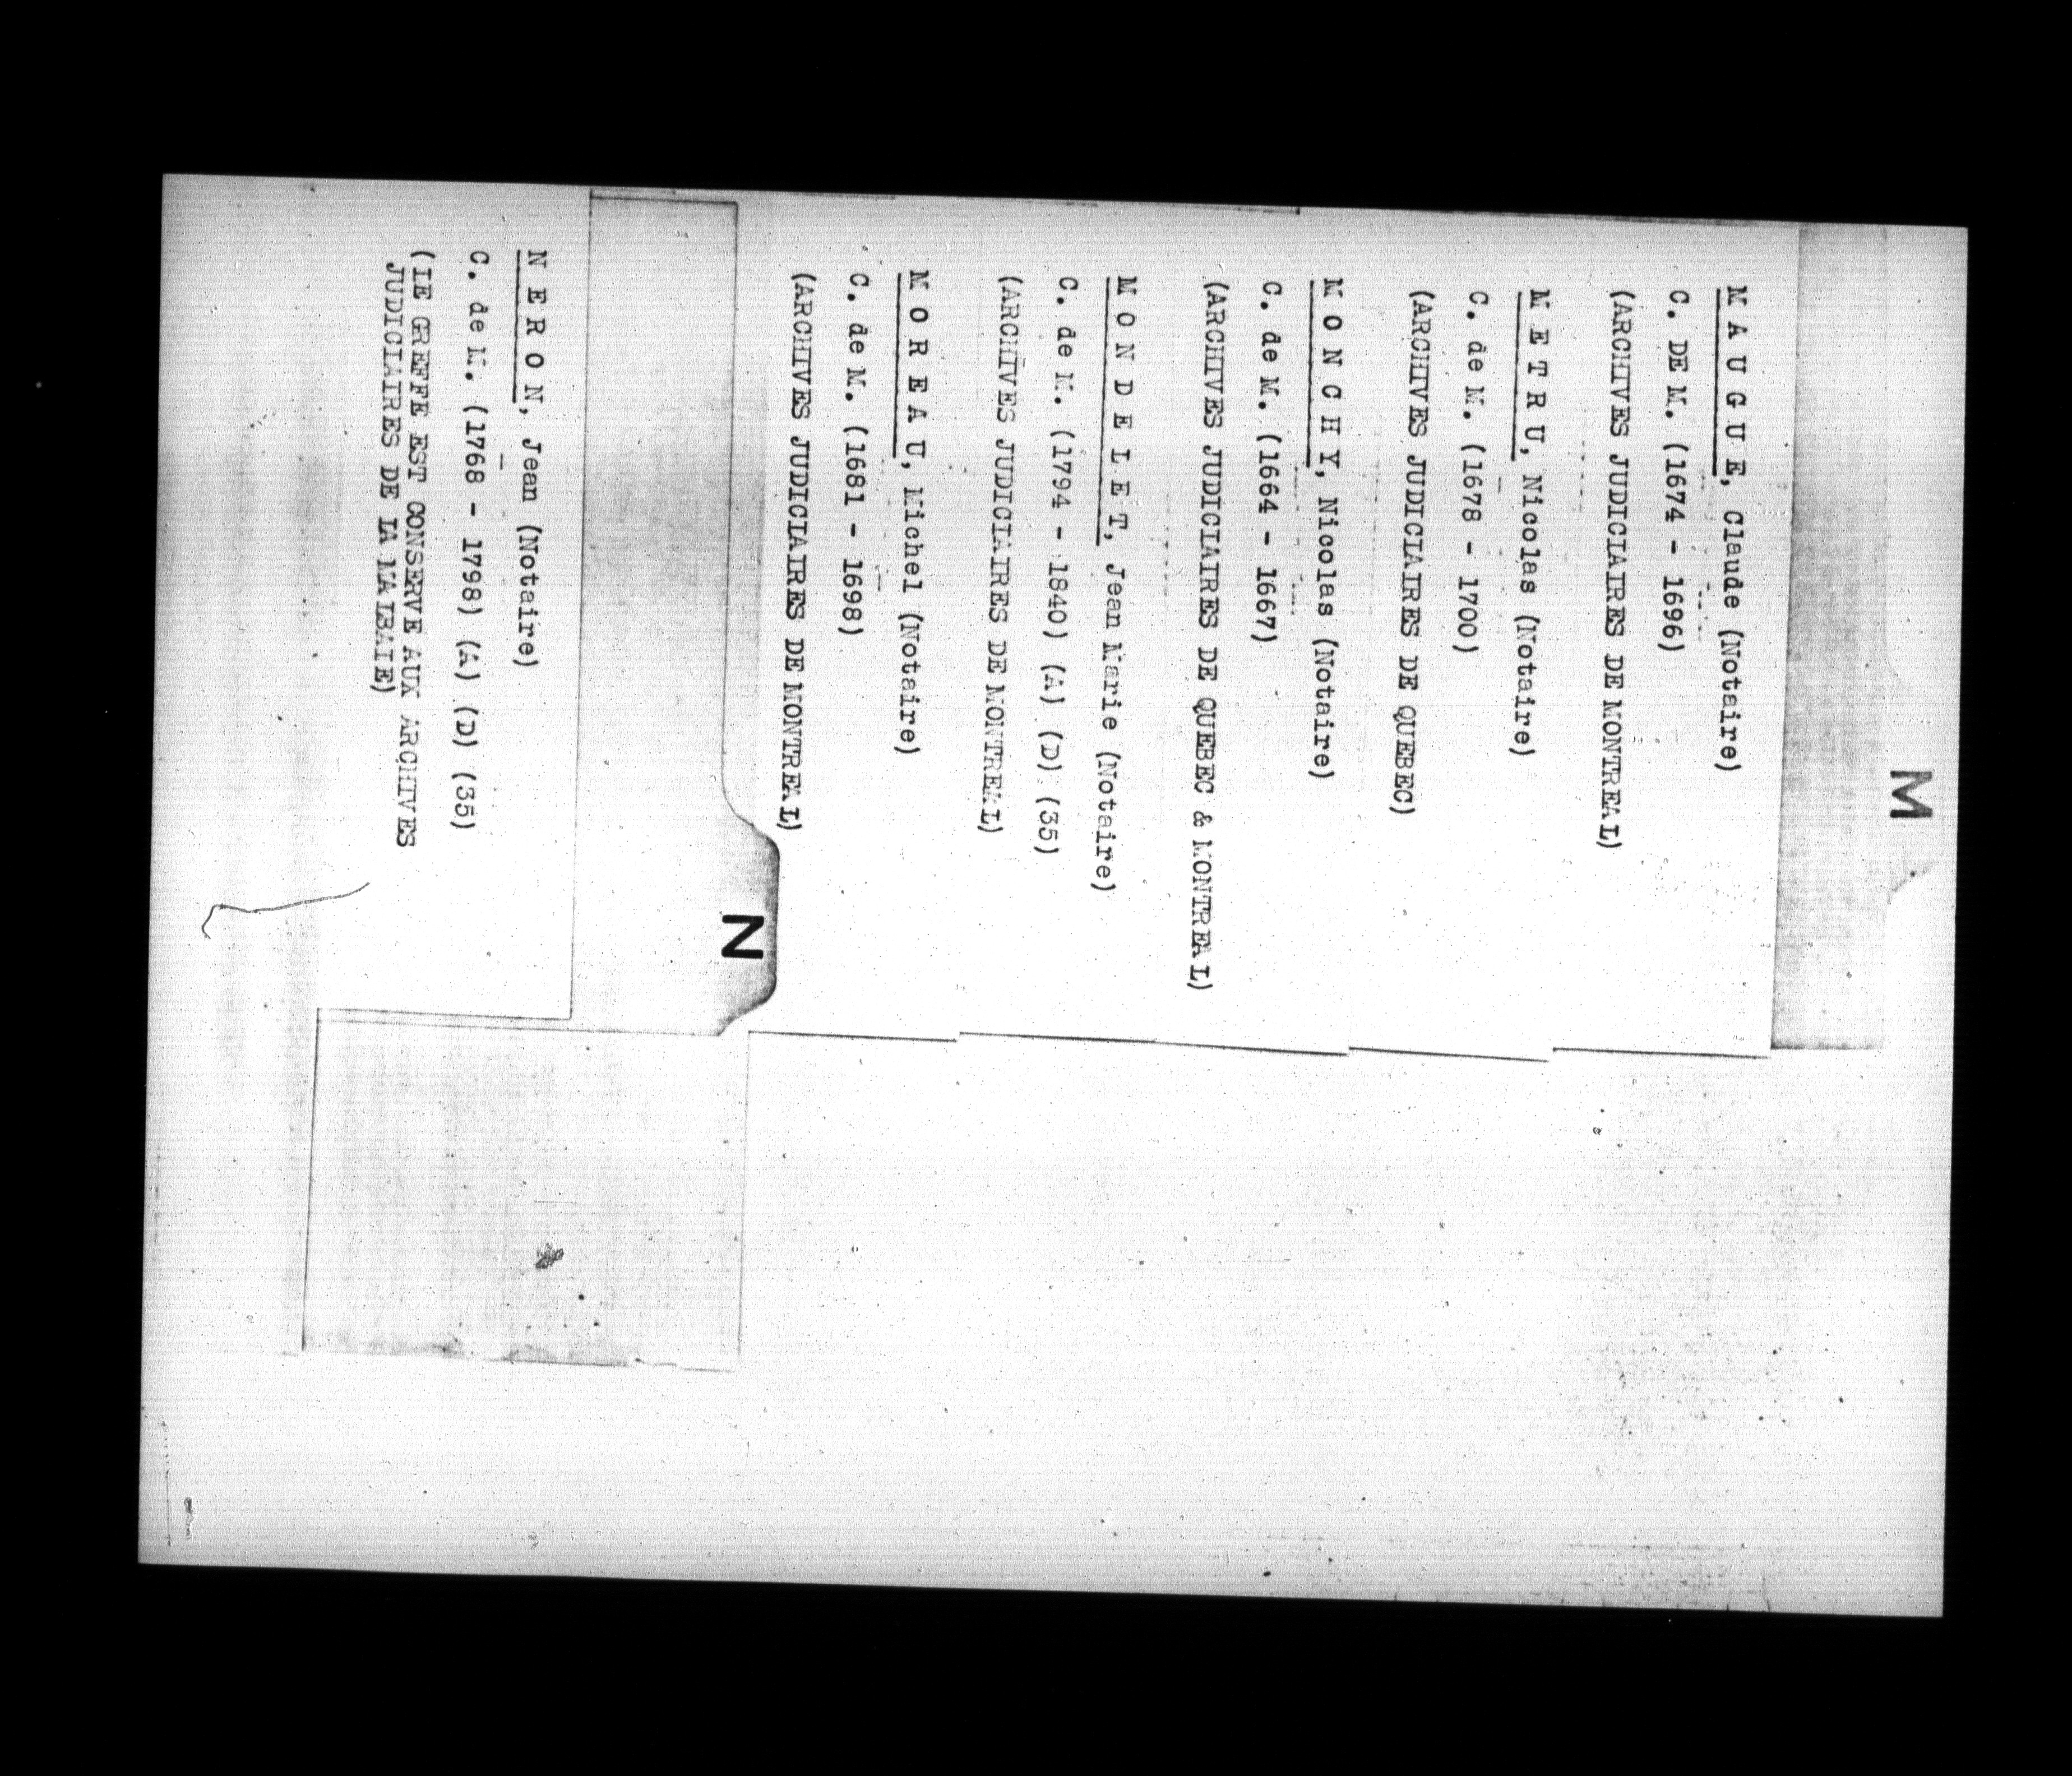 M
M A U G U E, Claude (Notaire)
C. DE M. (1674 - 1696)
(ARCHIVES JUDICIAIRES DE MONTREAL)
M E T R U, Nicolas (Notaire)
C. de M. (1678 - 1700)
(ARCHIVES JUDICIAIRES DE QUEBEC)
M O N C H Y, Nicolas (Notaire)
C. de M. (1664 - 1667)
(ARCHIVES JUDICIAIRES DE QUEBEC & MONTREAL)
M O N D E L E T, Jean Marie (Notaire)
C. de M. (1794 - 1840) (A) (D) (35)
(ARCHIVES JUDICIAIRES DE MONTREAL)
M O R E A U, Michel (Notaire)
C. de M. (1681 - 1698)
(ARCHIVES JUDICIAIRES DE MONTREAL)
N
N E R O N, Jean (Notaire)
C. de M. (1768 - 1798) (A) (D) (35)
(LE GREFFE EST CONSERVE AUX ARCHIVES
JUDICIAIRES DE LA MALBAIE)